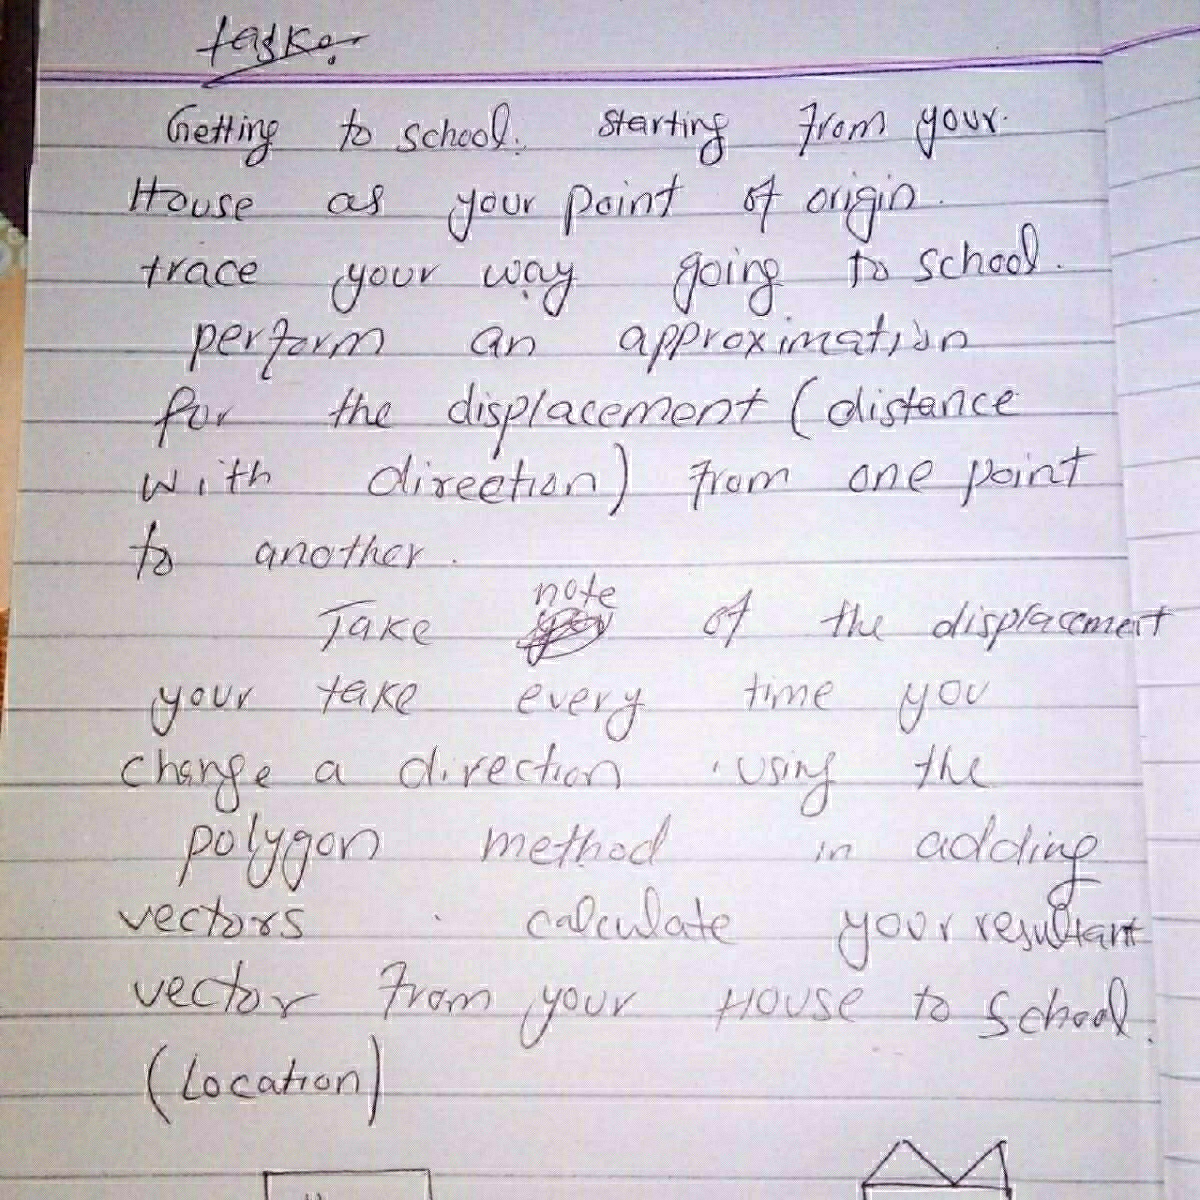 task:
Getting to school. Starting from your
House as your point of origin.
trace your way going to school.
perform an approximation
for the displacement (distance
with direction) from one point
to another.
Take note of the displacement
your take every time you
change a direction. using the
polygon method in adding
vectors. calculate your resultant
vector from your House to School.
(Location)